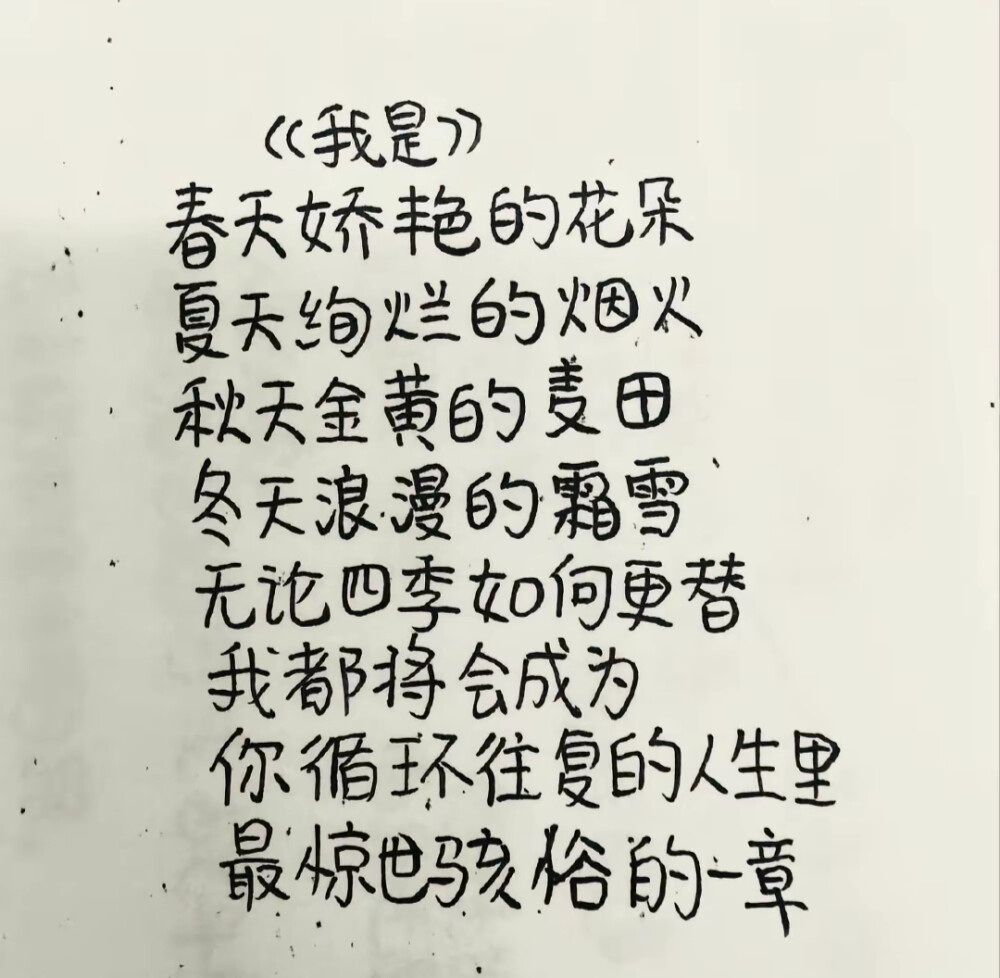 《我是》
春天娇艳的花朵
夏天绚烂的烟火
秋天金黄的麦田
冬天浪漫的霜雪
无论四季如何更替
我都将会成为
你循环往复的人生里
最惊世骇俗的一章